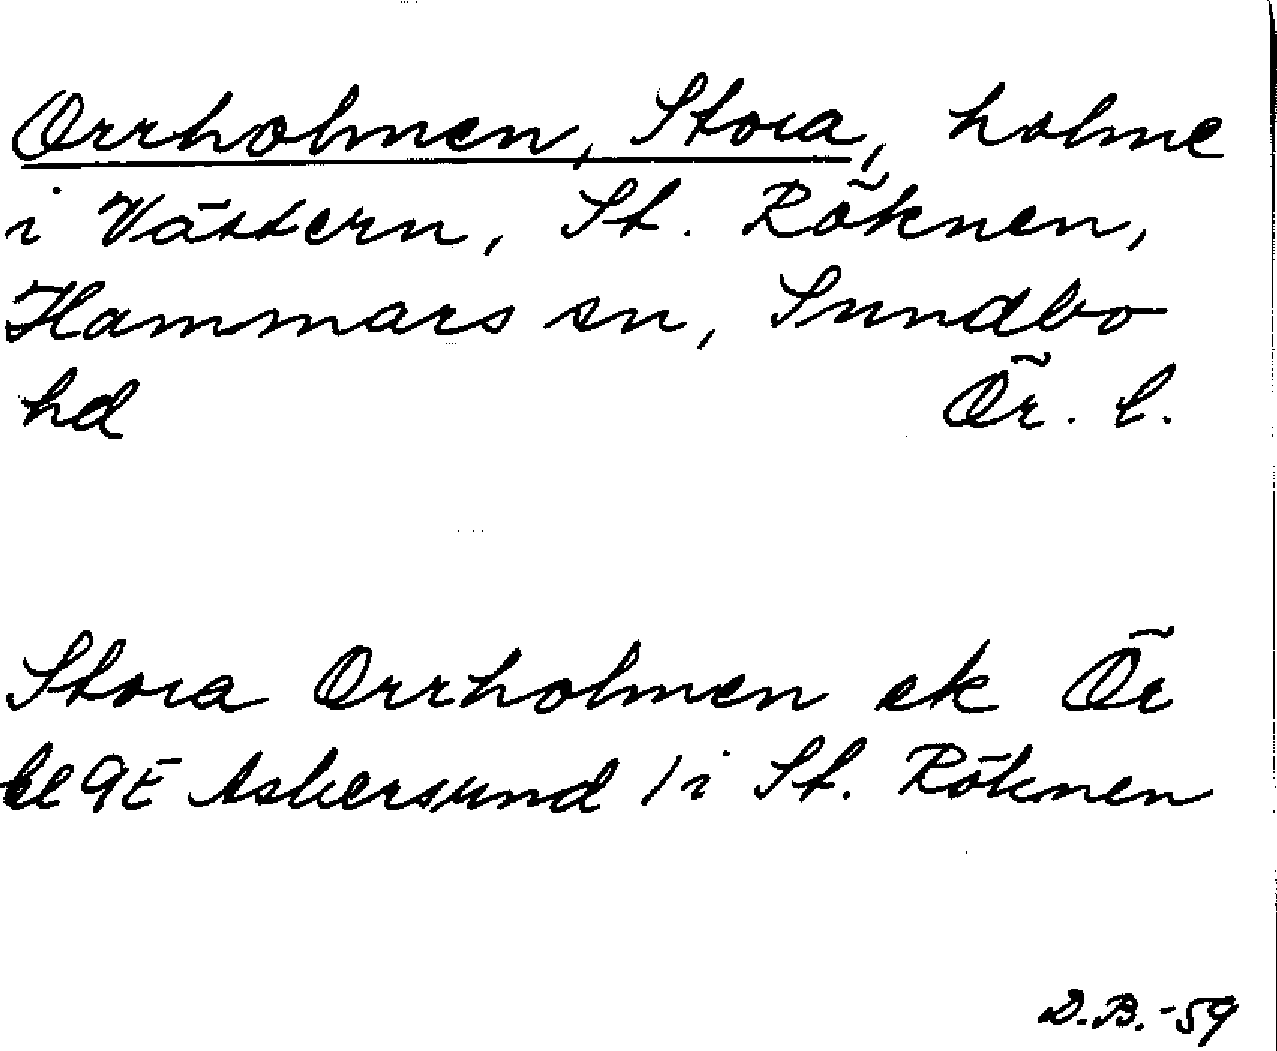 Orrholmen, Stora, holme
i Vättern, St. Röknen,
Hammars sn, Sundbo
hd Ör. l.
Stora Orrholmen ek Ör
bl 9E Askersund / i St. Röknen
D.B.-59